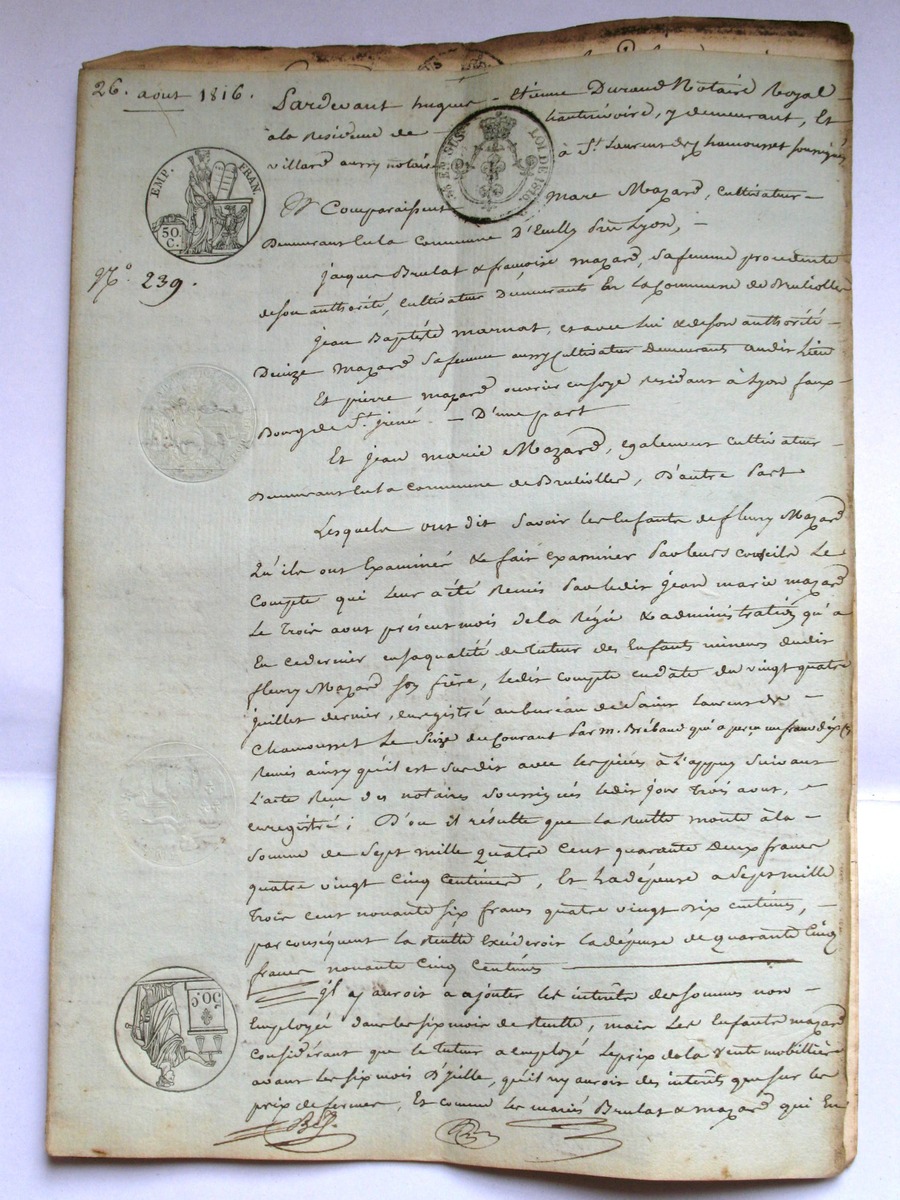 26. aout 1816.
Pardevant hugues - Etienne Durand Notaire Royal -
à la Residence de hauterivoire, y demeurant, Et
villard aussy notaire à St. Laurent de chamousset soussignés
EMP. FRAN
50 C.
EN SUS
LOI DE 1816.
N.o 239.
Comparaissent Marc Mazard, cultivateur -
Demeurant En la Commune D'Ecully Près Lyon, -
Jacques Brulat & françoise mazard, sa femme procedente
de son authorité, cultivateur Demeurants En La Commune de Brulioller
Jean Baptiste marnat, et avec lui & de son authorité -
Denize Mazard sa femme aussy Cultivateur demeurants audit Lieu
Et pierre mazard ouvrier en soye residant à Lyon faux-
Bourg de St. irené. - D'une part
Et Jean Marie Mazard, également cultivateur -
Demeurant En la Commune de Brulioller, D'autre Part
Lesquels ont dit Savoir les Enfants de fleury Mazard
Qu'ils ont Examiné & fait examiner Par leurs conseils Le
Compte qui Leur a été Remis Par ledit Jean marie mazard
Le Trois aout présent mois de la Régie & administration qu'a
Eu ce dernier en sa qualité de Tuteur des Enfants mineurs dudit
fleury Mazard son frère, ledit compte en date du vingt quatre
juillet dernier, enregistré au bureau de Saint Laurent de -
Chamousset Le Seize du Courant Par m. Brébaud qui a perçu un franc dix cs
Remis ainsy qu'il est Susdit avec les pièces à L'appuy Suivant
L'acte Recu des notaires soussignés ledit jour Trois aout, -
enregistré; D'ou il résulte que la Recette monte à la -
Somme de Sept mille quatre Cent quarante deux francs
quatre vingt Cinq Centimes, Et La dépense a Sept mille
Trois cent nonante Six francs quatre vingt dix centimes, -
par conséquent la Recette Excéderoit la dépense de quarante Cinq
francs nonante Cinq Centimes
Il y auroit a ajouter les intérêts des sommes non -
Employé dans les six mois de Recette, mais Les Enfants mazard
Considérant que le tuteur a employé Le prix de la vente mobillière
avant les six mois qu'il n'y auroit des intérêts que sur les
prix de fermes, Et comme les mariés Brulat & mazard qui En
50.C